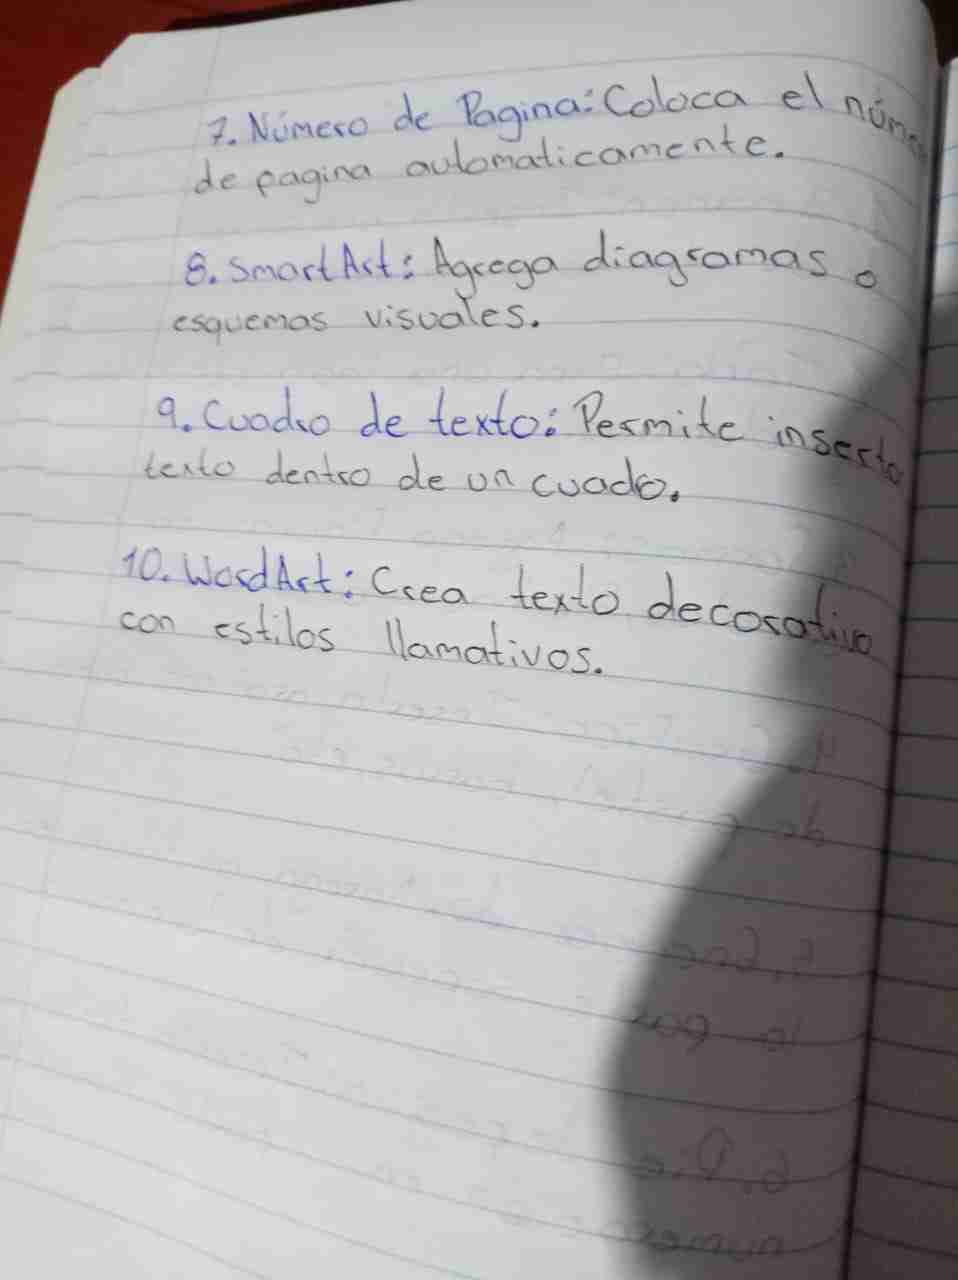 7. Número de Pagina: Coloca el
de pagina automaticamente.
8. SmartArt: Agrega diagramas o
esquemas visuales.
9. Cuadro de texto: Permite inserto
texto dentro de un cuado.
10. WordArt: Crea texto decorativo
con estilos llamativos.